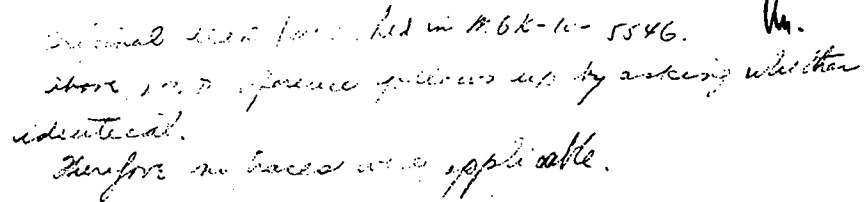 original furnished in MGK-W-5546.
above, reference follows up by asking whether
identical.
Therefore no traces were applicable.